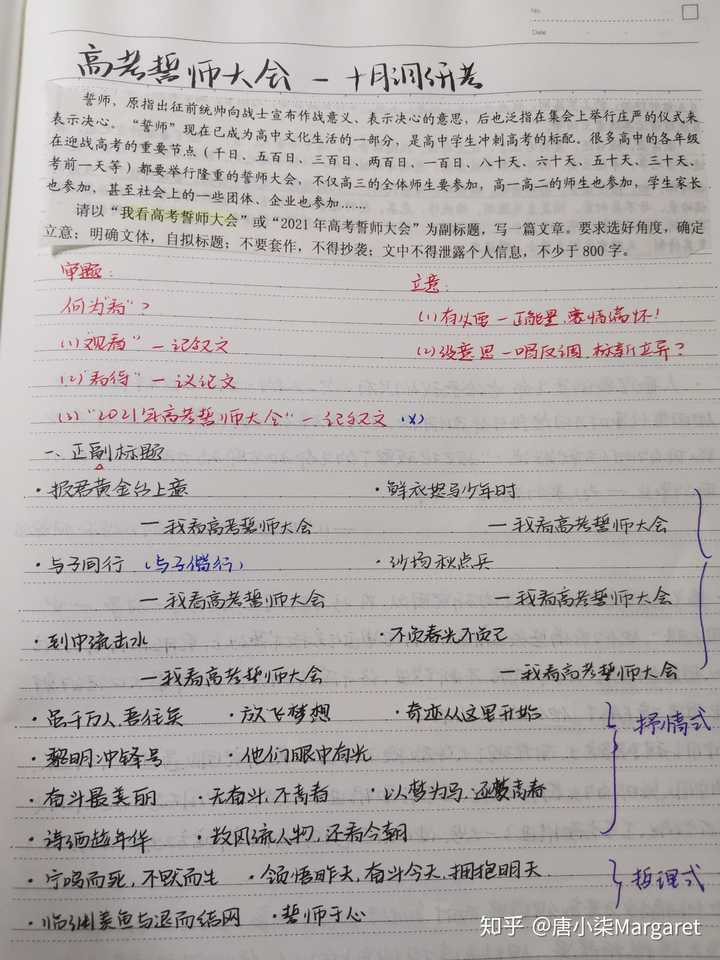 No.
Date
高考誓师大会 — 十月调研考
誓师，原指出征前统帅向战士宣布作战意义、表示决心的意思，后也泛指在集会上举行庄严的仪式来
表示决心。“誓师”现在已成为高中文化生活的一部分，是高中学生冲刺高考的标配。很多高中的各年级
在迎战高考的重要节点（千日、五百日、三百日、两百日、一百日、八十天、六十天、五十天、三十天、
考前一天等）都要举行隆重的誓师大会，不仅高三的全体师生要参加，高一高二的师生也参加，学生家长
也参加，甚至社会上的一些团体、企业也参加……
请以“我看高考誓师大会”或“2021年高考誓师大会”为副标题，写一篇文章。要求选好角度，确定
立意；明确文体，自拟标题；不要套作，不得抄袭；文中不得泄露个人信息，不少于800字。
审题： 立意：
何为“看”？ (1)有必要—正能量，豪情满怀！
(1)“观看”—记叙文 (2)没意思—唱反调，标新立异？
(2)“看待”—议论文
(3)“2021年高考誓师大会”—记叙文 (×)
一、正副标题
·报君黄金台上意 ·鲜衣怒马少年时
—我看高考誓师大会 —我看高考誓师大会
·与子同行（与子偕行） ·沙场秋点兵
—我看高考誓师大会 —我看高考誓师大会
·到中流击水 ·不负春光不负己
—我看高考誓师大会 —我看高考誓师大会
·虽千万人，吾往矣 ·放飞梦想 ·奇迹从这里开始 抒情式
·黎明冲锋号 ·他们眼中有光
·奋斗最美丽 ·无奋斗，不青春 ·以梦为马，逐梦青春
·诗酒趁年华 ·数风流人物，还看今朝
·宁鸣而死，不默而生 ·领悟昨天，奋斗今天，拥抱明天 哲理式
·临渊羡鱼与退而结网 ·誓师于心
知乎 @唐小柒Margaret